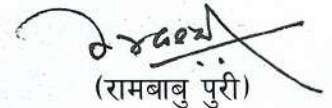 (रामबाबु पुरी)